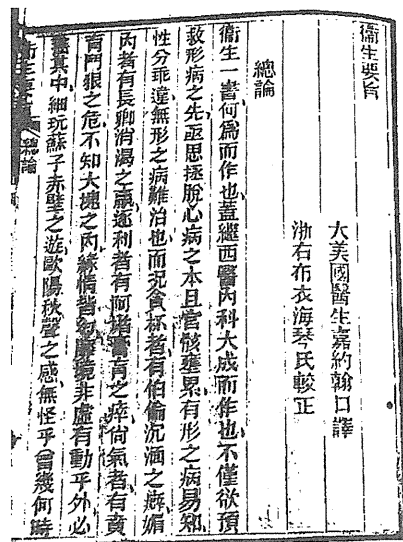 衞生要旨
大美國醫生嘉約翰口譯
浙右布衣海琴氏較正
總論
衞生一書何爲而作也蓋繼西醫內科大成而作也不僅欲預
救形病之先亟思拯脫心病之本且官骸壅累有形之病易知
性分乖違無形之病難治也而況貪杯者有伯倫沉湎之癖媚
內者有長卿消渴之羸逐利者有阿堵膏肓之瘁尙氣者有賁
育鬥狠之危不知大塊之內緣情皆幻境非虛有動乎外必
其中細玩蘇子赤壁之遊歐陽秋聲之感無怪乎曾幾何時
總論